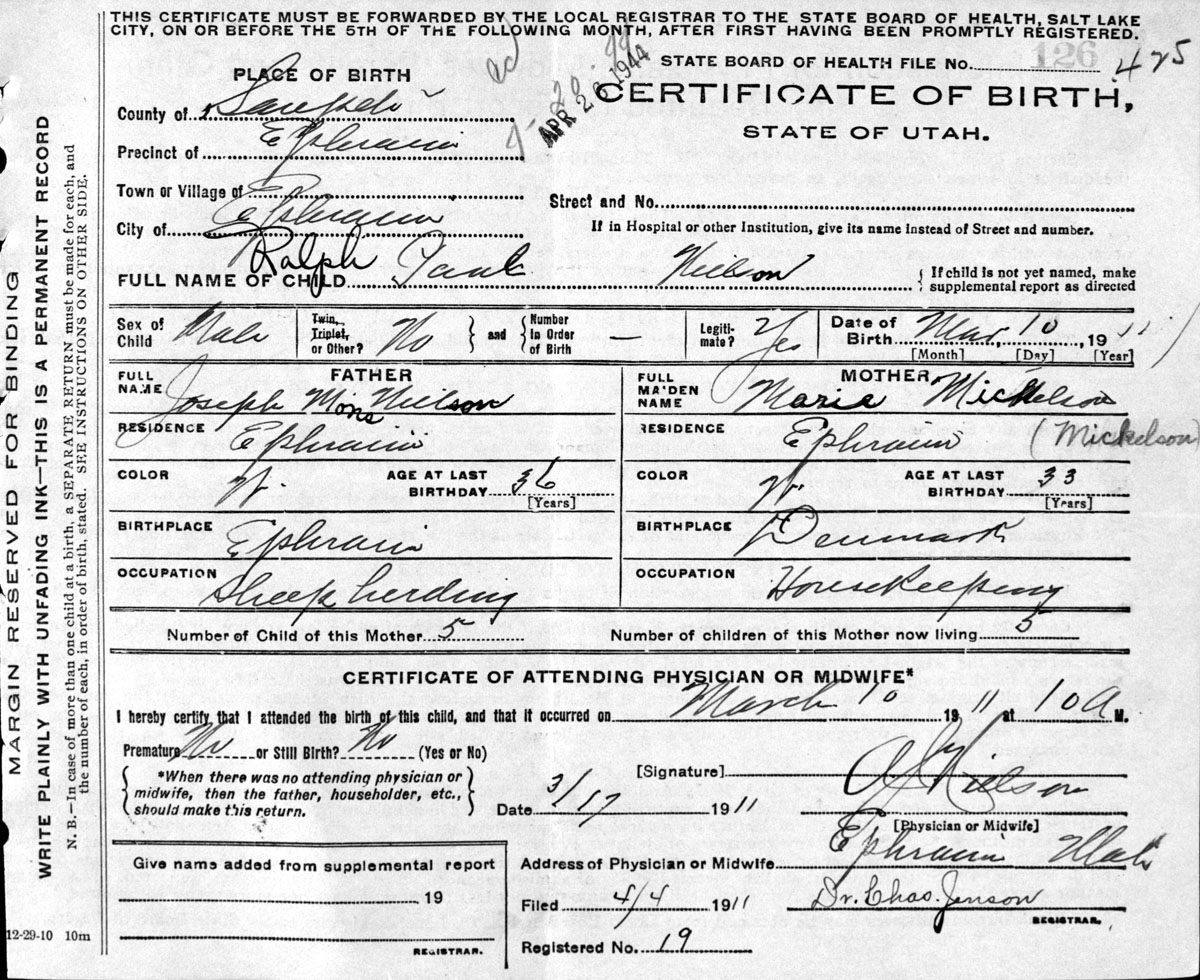 THIS CERTIFICATE MUST BE FORWARDED BY THE LOCAL REGISTRAR TO THE STATE BOARD OF HEALTH, SALT LAKE
CITY, ON OR BEFORE THE 5TH OF THE FOLLOWING MONTH, AFTER FIRST HAVING BEEN PROMPTLY REGISTERED.
STATE BOARD OF HEALTH FILE No. 126 425
PLACE OF BIRTH
APR 26 1944
CERTIFICATE OF BIRTH,
STATE OF UTAH.
County of Sanpete
Precinct of Ephraim
Town or Village of
Street and No.
City of Ephraim
If in Hospital or other Institution, give its name instead of Street and number.
FULL NAME OF CHILD Ralph Paul Nielson
{ If child is not yet named, make
supplemental report as directed
Sex of Child Male
Twin, Triplet, or Other? No } and { Number in Order of Birth —
Legiti-mate? Yes
Date of Birth Mar. 10, 1911
[Month] [Day] [Year]
FATHER
FULL NAME Joseph Mons Nielson
RESIDENCE Ephraim
COLOR W. AGE AT LAST BIRTHDAY 36
[Years]
BIRTHPLACE Ephraim
OCCUPATION Sheep herding
MOTHER
FULL MAIDEN NAME Marie Mickelson
RESIDENCE Ephraim (Mickelson)
COLOR W. AGE AT LAST BIRTHDAY 33
[Years]
BIRTHPLACE Denmark
OCCUPATION Housekeeping
Number of Child of this Mother 5 Number of children of this Mother now living 5
CERTIFICATE OF ATTENDING PHYSICIAN OR MIDWIFE*
I hereby certify that I attended the birth of this child, and that it occurred on March 10 1911 at 10 A M.
Premature No or Still Birth? No (Yes or No)
{ *When there was no attending physician or
midwife, then the father, householder, etc.,
should make this return. }
[Signature] Nielson
Date 3/17 1911
[Physician or Midwife]
Address of Physician or Midwife Ephraim Utah
Give name added from supplemental report
19
REGISTRAR.
Filed 4/4 1911 Dr. Chas. Jenson
REGISTRAR.
Registered No. 19
12-29-10 10m
MARGIN RESERVED FOR BINDING
WRITE PLAINLY WITH UNFADING INK—THIS IS A PERMANENT RECORD
N. B.—In case of more than one child at a birth, a SEPARATE RETURN must be made for each, and
the number of each, in order of birth, stated. SEE INSTRUCTIONS ON OTHER SIDE.